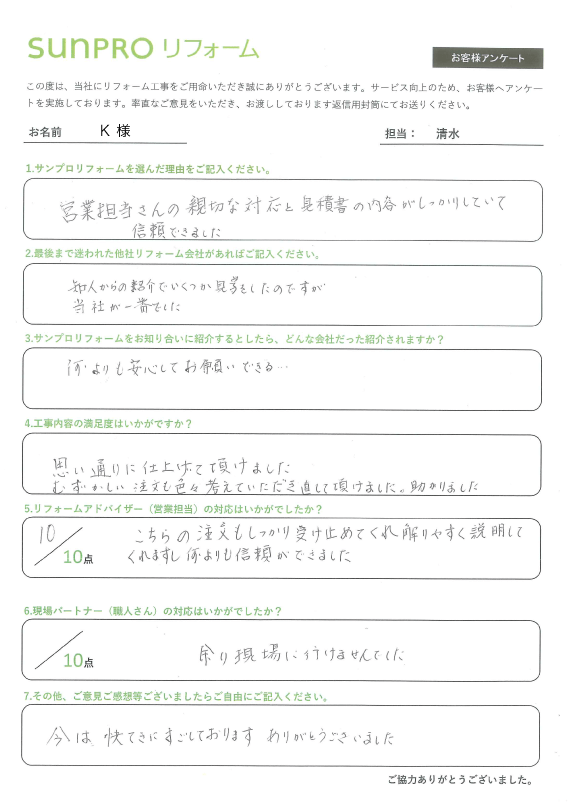 sunPRO リフォーム
お客様アンケート
この度は、当社にリフォーム工事をご用命いただき誠にありがとうございます。サービス向上のため、お客様へアンケー
トを実施しております。率直なご意見をいただき、お渡ししております返信用封筒にてお送りください。
お名前 K 様 担当： 清水
1.サンプロリフォームを選んだ理由をご記入ください。
営業担当さんの親切な対応と見積書の内容がしっかりしていて
信頼できました
2.最後まで迷われた他社リフォーム会社があればご記入ください。
知人からの紹介でいくつか見学をしたのですが
当社が一番でした
3.サンプロリフォームをお知り合いに紹介するとしたら、どんな会社だった紹介されますか？
何よりも安心してお願いできる…
4.工事内容の満足度はいかがですか？
思い通りに仕上げて頂けました
むずかしい注文も色々考えていただき直して頂けました。助かりました
5.リフォームアドバイザー（営業担当）の対応はいかがでしたか？
10/10点
こちらの注文もしっかり受け止めてくれ解りやすく説明して
くれますし何よりも信頼ができました
6.現場パートナー（職人さん）の対応はいかがでしたか？
/10点 余り現場に行けませんでした
7.その他、ご意見ご感想等ございましたらご自由にご記入ください。
今は 快てきにすごしております ありがとうございました
ご協力ありがとうございました。